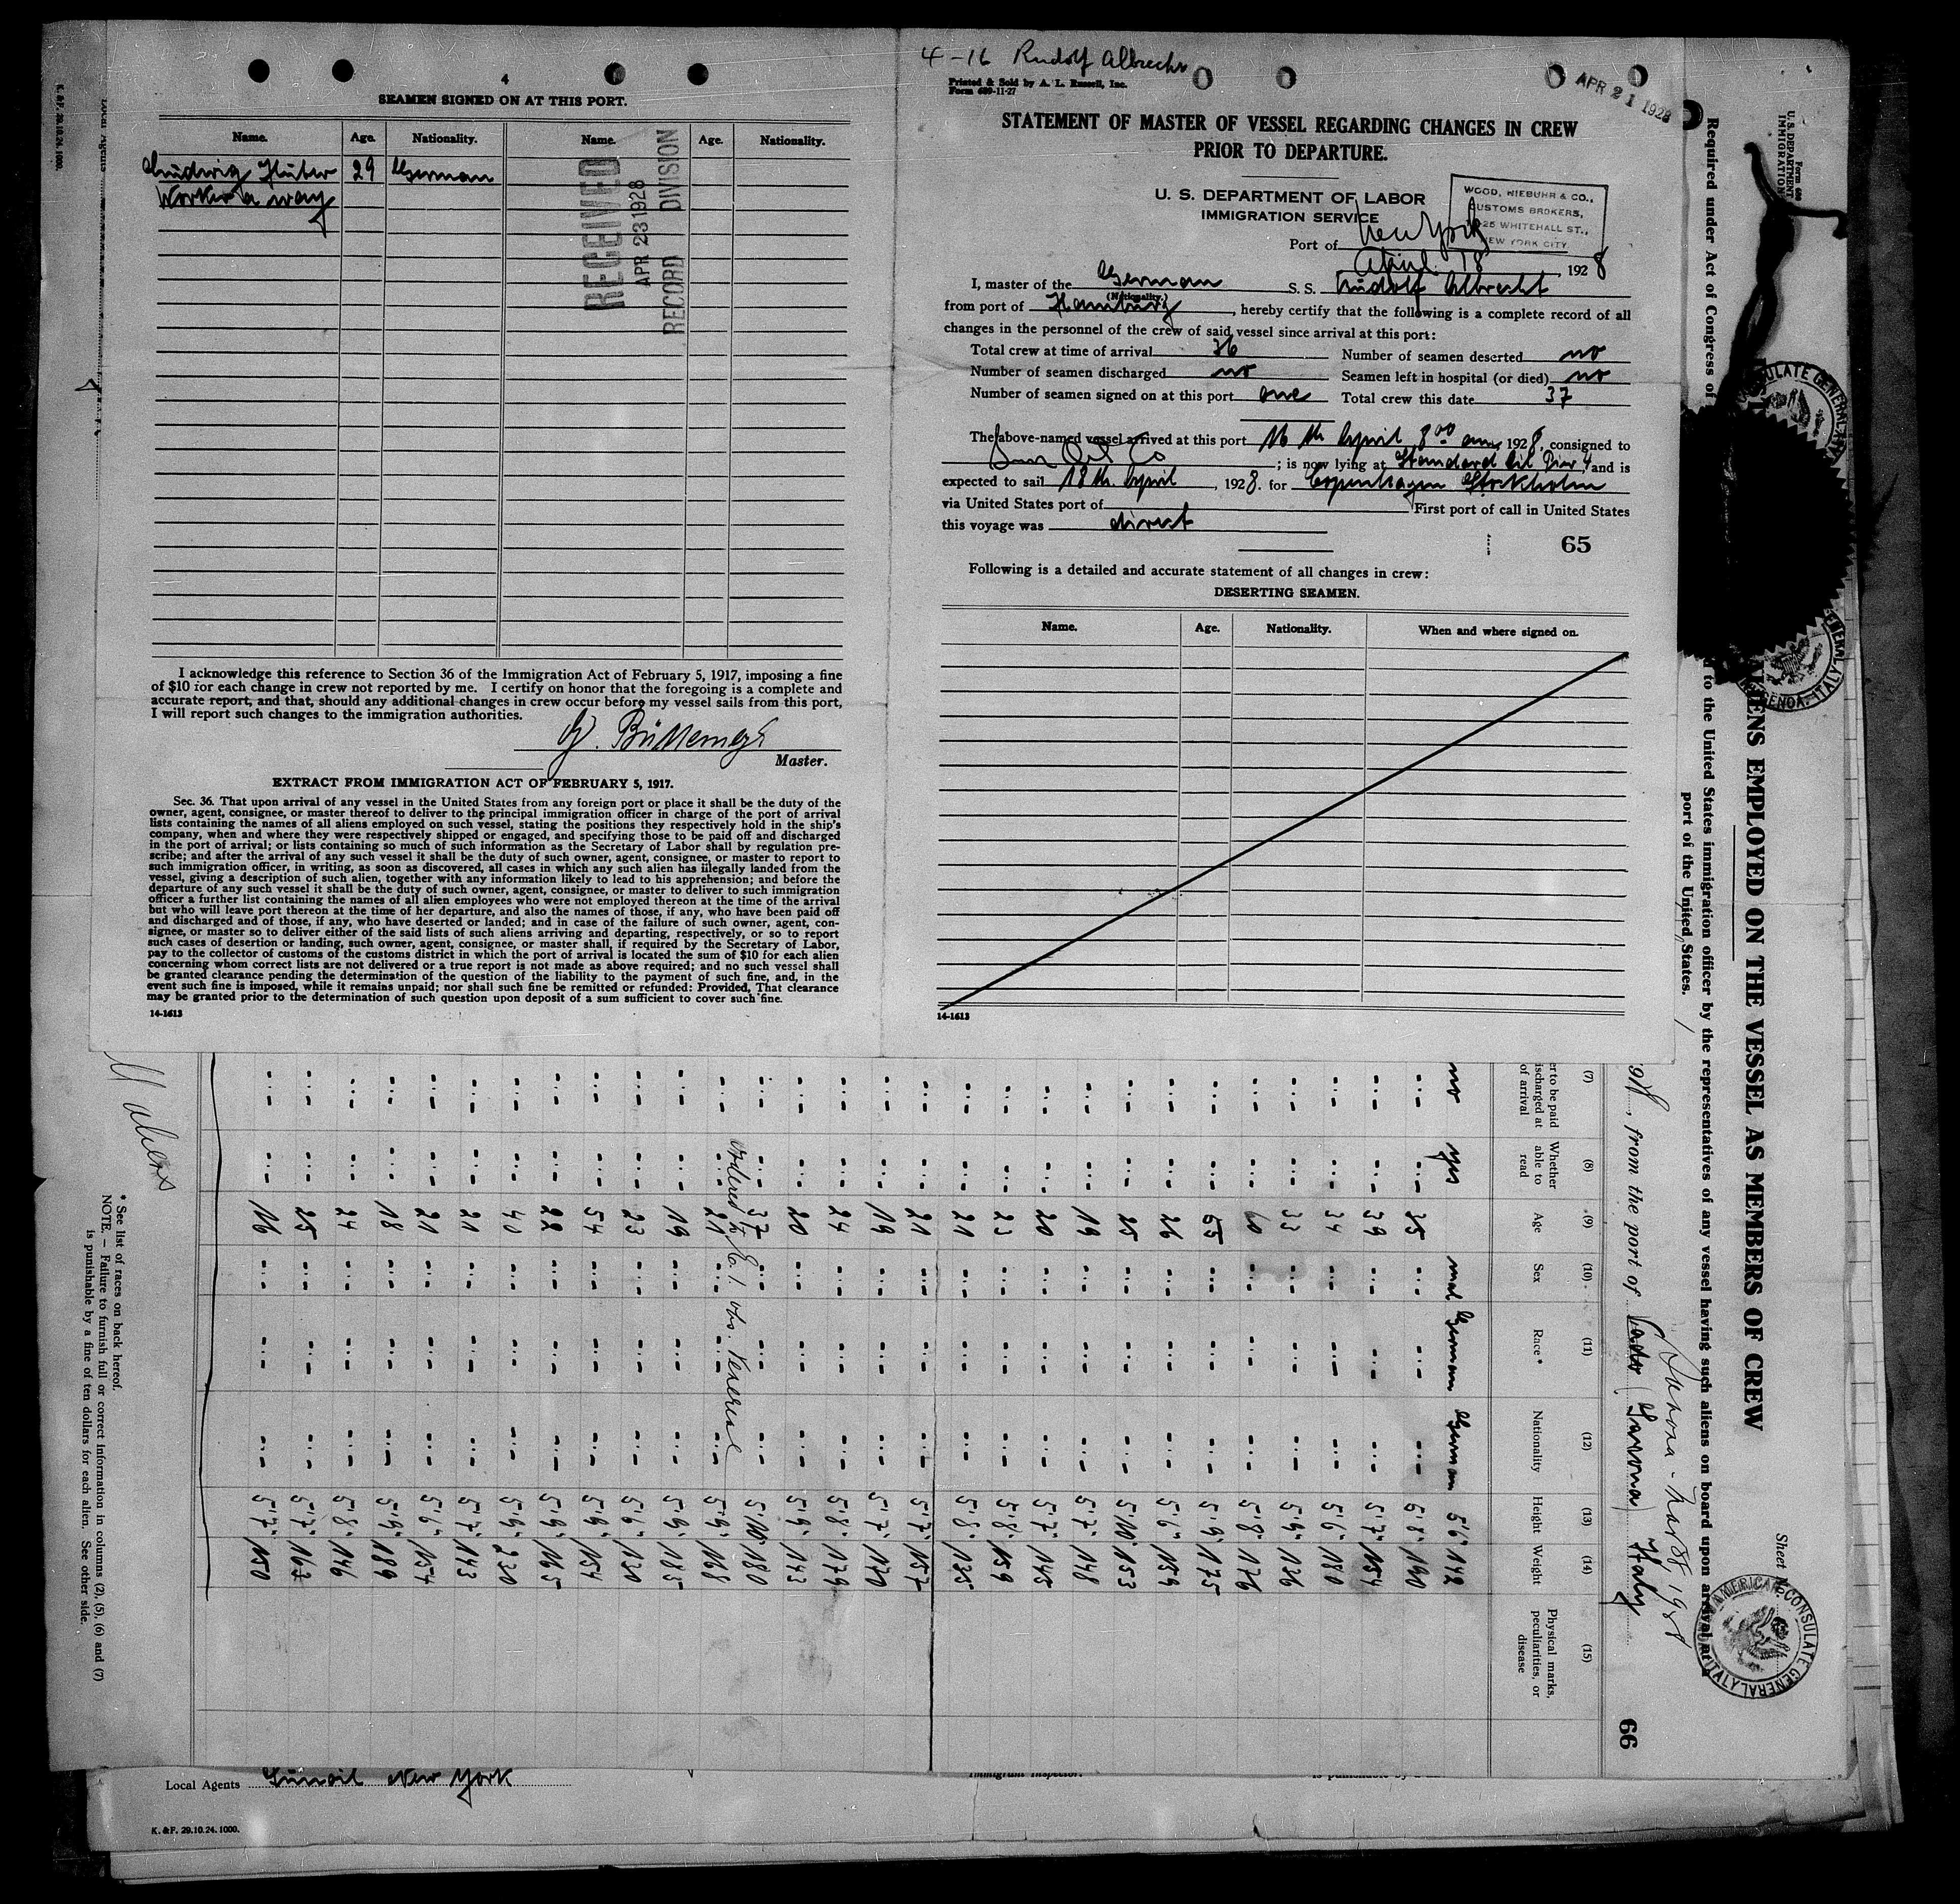 4
SEAMEN SIGNED ON AT THIS PORT.
Name. Age. Nationality. Name. Age. Nationality.
Ludwig 29 German
Work a way
RECEIVED
APR 23 1928
RECORD DIVISION
I acknowledge this reference to Section 36 of the Immigration Act of February 5, 1917, imposing a fine
of $10 for each change in crew not reported by me. I certify on honor that the foregoing is a complete and
accurate report, and that, should any additional changes in crew occur before my vessel sails from this port,
I will report such changes to the immigration authorities.
Master.
EXTRACT FROM IMMIGRATION ACT OF FEBRUARY 5, 1917.
Sec. 36. That upon arrival of any vessel in the United States from any foreign port or place it shall be the duty of the
owner, agent, consignee, or master thereof to deliver to the principal immigration officer in charge of the port of arrival
lists containing the names of all aliens employed on such vessel, stating the positions they respectively hold in the ship's
company, when and where they were respectively shipped or engaged, and specifying those to be paid off and discharged
in the port of arrival; or lists containing so much of such information as the Secretary of Labor shall by regulation pre-
scribe; and after the arrival of any such vessel it shall be the duty of such owner, agent, consignee, or master to report to
such immigration officer, in writing, as soon as discovered, all cases in which any such alien has illegally landed from the
vessel, giving a description of such alien, together with any information likely to lead to his apprehension; and before the
departure of any such vessel it shall be the duty of such owner, agent, consignee, or master to deliver to such immigration
officer a further list containing the names of all alien employees who were not employed thereon at the time of the arrival
but who will leave port thereon at the time of her departure, and also the names of those, if any, who have been paid off
and discharged and of those, if any, who have deserted or landed; and in case of the failure of such owner, agent, con-
signee, or master so to deliver either of the said lists of such aliens arriving and departing, respectively, or so to report
such cases of desertion or landing, such owner, agent, consignee, or master shall, if required by the Secretary of Labor,
pay to the collector of customs of the customs district in which the port of arrival is located the sum of $10 for each alien
concerning whom correct lists are not delivered or a true report is not made as above required; and no such vessel shall
be granted clearance pending the determination of the question of the liability to the payment of such fine, and, in the
event such fine is imposed, while it remains unpaid; nor shall such fine be remitted or refunded: Provided, That clearance
may be granted prior to the determination of such question upon deposit of a sum sufficient to cover such fine.
14-1613
4-16 Rudolf Albrecht
Printed & Sold by A. L. Russell, Inc.
Form 689-11-27
APR 21 1928
STATEMENT OF MASTER OF VESSEL REGARDING CHANGES IN CREW
PRIOR TO DEPARTURE.
U. S. DEPARTMENT OF LABOR
IMMIGRATION SERVICE
WOOD, NIEBUHR & CO.,
CUSTOMS BROKERS,
25 WHITEHALL ST.,
NEW YORK CITY
Port of New York
April 18, 1928
I, master of the German S. S. Rudolf Albrecht
(Nationality.)
from port of Hamburg, hereby certify that the following is a complete record of all
changes in the personnel of the crew of said vessel since arrival at this port:
Total crew at time of arrival 36 Number of seamen deserted no
Number of seamen discharged no Seamen left in hospital (or died) no
Number of seamen signed on at this port one Total crew this date 37
The above-named vessel arrived at this port 16 th April 8 00 am, 1928, consigned to
Sun Oil Co; is now lying at Standard Oil Pier 4 and is
expected to sail 18 th. April, 1928. for Copenhagen Stockholm
via United States port of First port of call in United States
this voyage was direct
65
Following is a detailed and accurate statement of all changes in crew:
DESERTING SEAMEN.
Name. Age. Nationality. When and where signed on.
14-1613
Form 680
U. S. DEPARTMENT
IMMIGRATION
Sheet No.
ALIENS EMPLOYED ON THE VESSEL AS MEMBERS OF CREW
Required under Act of Congress of
to the United States immigration officer by the representatives of any vessel having such aliens on board upon arrival at a
port of the United States.
AMERICAN CONSULATE GENERAL
GENOA, ITALY
, from the port of Vado Savona Italy
66
(7) (8) (9) (10) (11) (12) (13) (14) (15)
er to be paid
discharged at
of arrival
Whether
able to
read
Age
Sex
Race *
Nationality
Height
Weight
Physical marks,
peculiarities, or
disease
no yes mal German German 5'6" 142
35 5'8" 190
39 5'7" 154
34 5'6" 180
33 5'9" 136
60 5'8" 176
55 5'9" 175
26 5'6" 159
25 5'10" 153
19 5'7" 148
20 5'7" 145
23 5'8" 159
21 5'8" 135
21 5'7" 157
19 5'7" 170
24 5'8" 179
20 5'9" 143
37 5'10" 180
21 5'9" 168
ordered to E. I. obs. Venereal
19 5'9" 185
23 5'6" 130
54 5'9" 154
22 5'9" 165
40 5'9" 230
21 5'7" 143
21 5'6" 154
18 5'9" 189
24 5'8" 146
25 5'7" 163
16 5'7" 150
* See list of races on back hereof.
NOTE. — Failure to furnish full or correct information in columns (2), (5), (6) and (7)
is punishable by a fine of ten dollars for each alien. See other side.
Local Agents
K. & F. 29.10.24. 1000.
Local Agents Sunoil New York
Immigrant Inspector.
K. & F. 29.10.24. 1000.